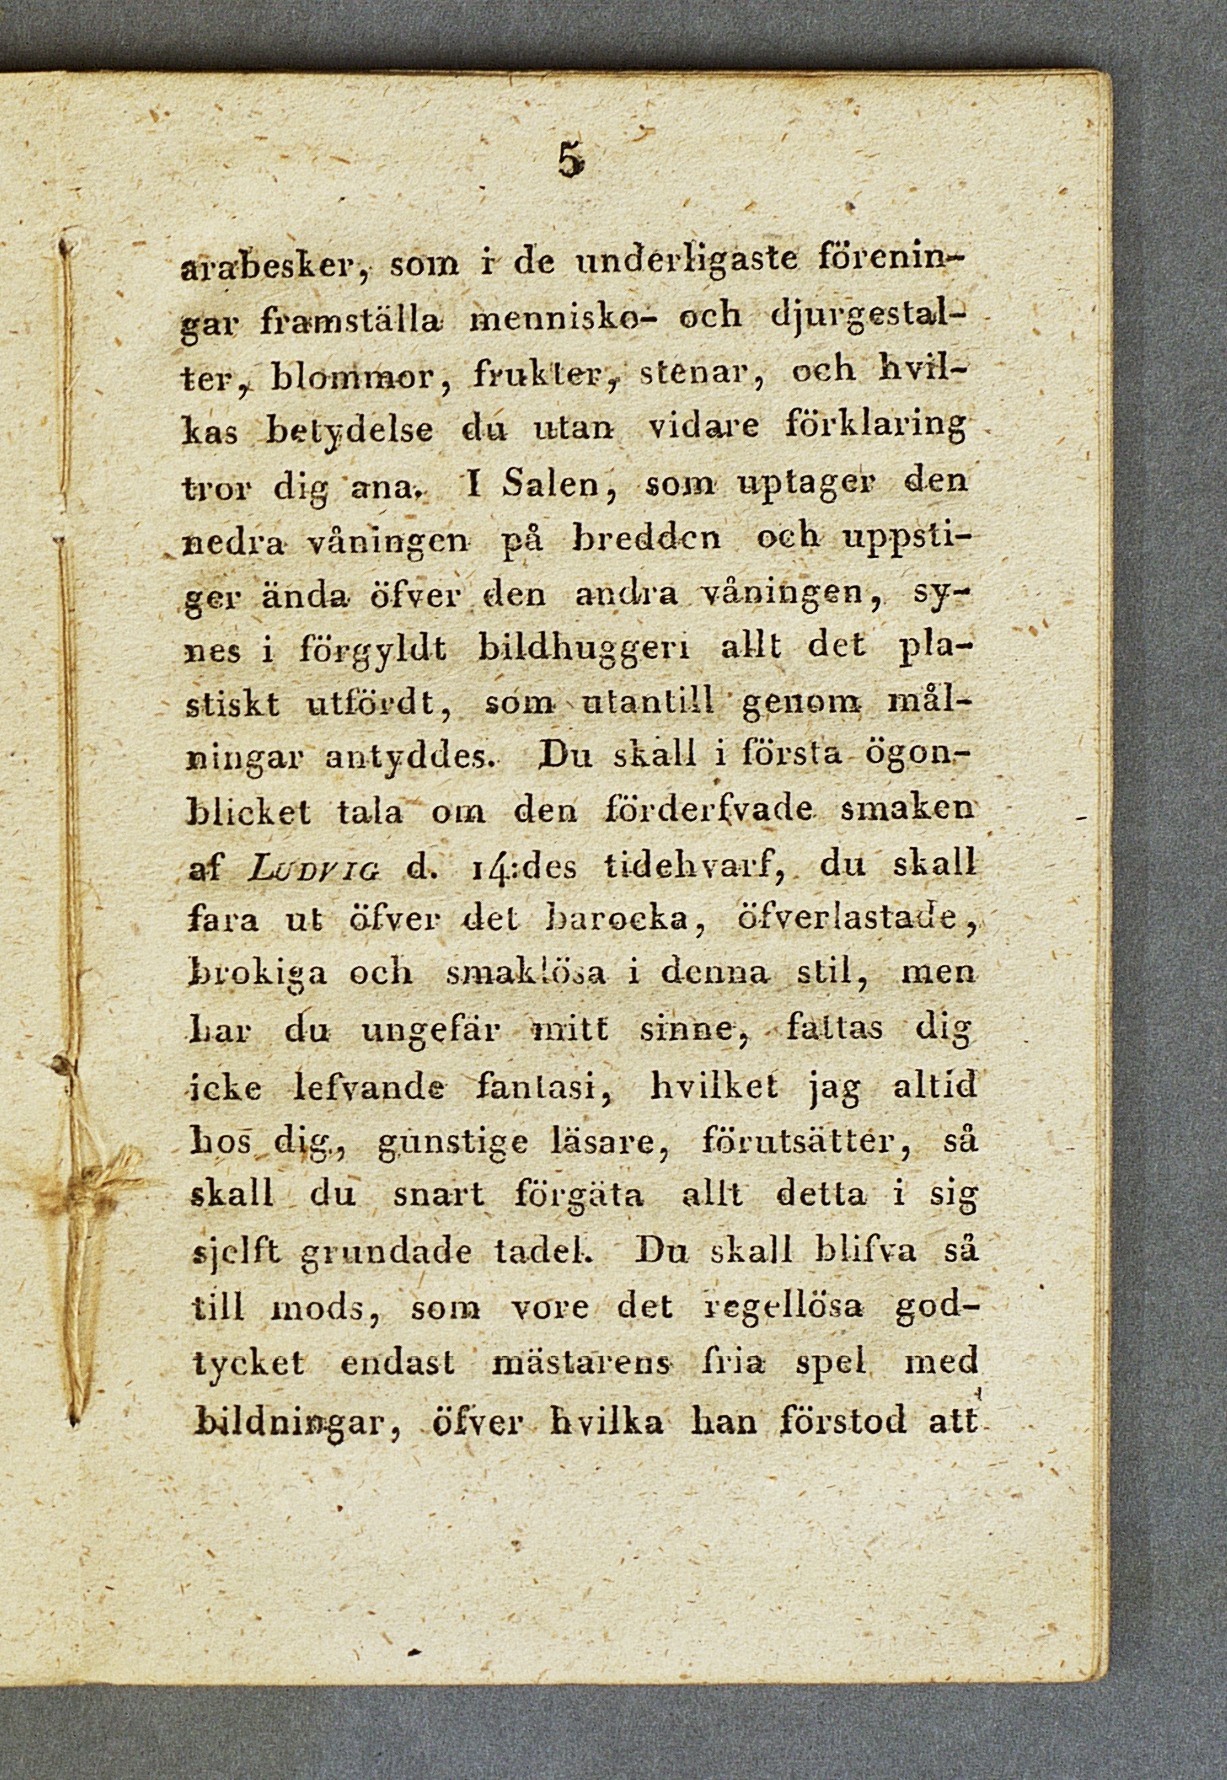 5
arabesker, som i de underligaste förenin-
gar framställa mennisko- och djurgestal-
ter, blommor, frukter, stenar, och hvil-
kas betydelse du utan vidare förklaring
tror dig ana. I Salen, som uptager den
nedra våningen på bredden och uppsti-
ger ända öfver den andra våningen, sy-
nes i förgyldt bildhuggeri allt det pla-
stiskt utfördt, som utantill genom mål-
ningar antyddes. Du skall i första ögon-
blicket tala om den förderfvade smaken
af LUDVIG d. 14:des tidehvarf, du skall
fara ut öfver det barocka, öfverlastade,
brokiga och smaklösa i denna stil, men
har du ungefär mitt sinne, fattas dig
icke lefvande fantasi, hvilket jag altid
hos dig, gunstige läsare, förutsätter, så
skall du snart förgäta allt detta i sig
sjelft grundade tadel. Du skall blifva så
till mods, som vore det regellösa god-
tycket endast mästarens fria spel med
bildningar, öfver hvilka han förstod att